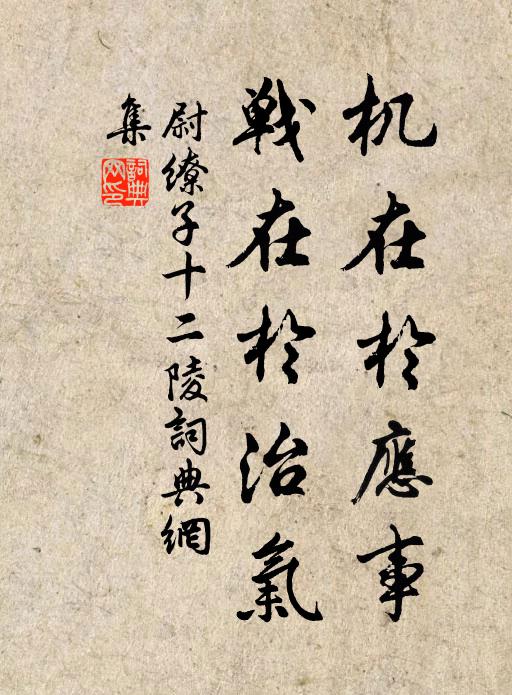 机在於應事
戰在於治氣
尉繚子十二陵詞典網
集
詞典網印